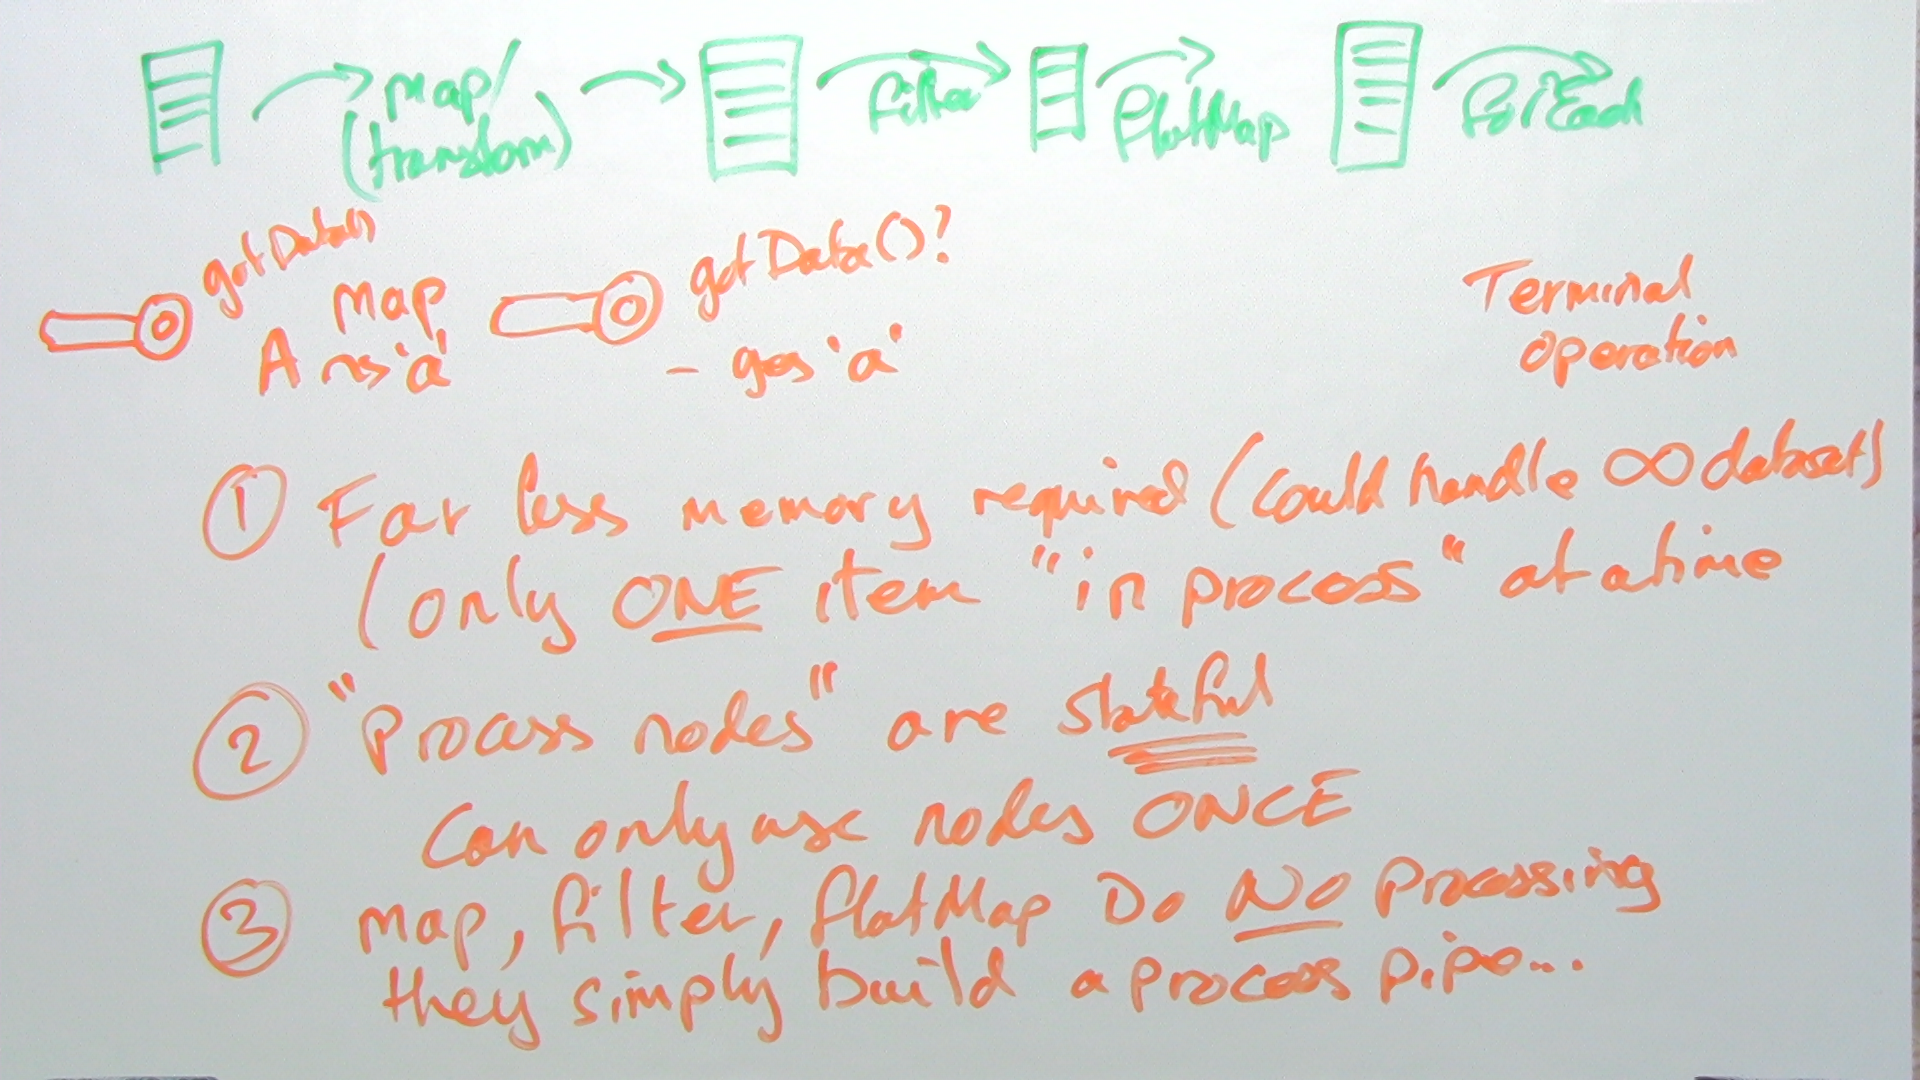 map/ filter flatMap forEach
(transform)
getData() getData()?
Map
A ~> 'a' - gets 'a'
Terminal
operation
① Far less memory required (could handle ∞ dataset)
(only ONE item "in process" at a time
② "Process nodes" are stateful
Can only use nodes ONCE
③ map, filter, flatMap Do NO Processing
they simply build a process pipe...